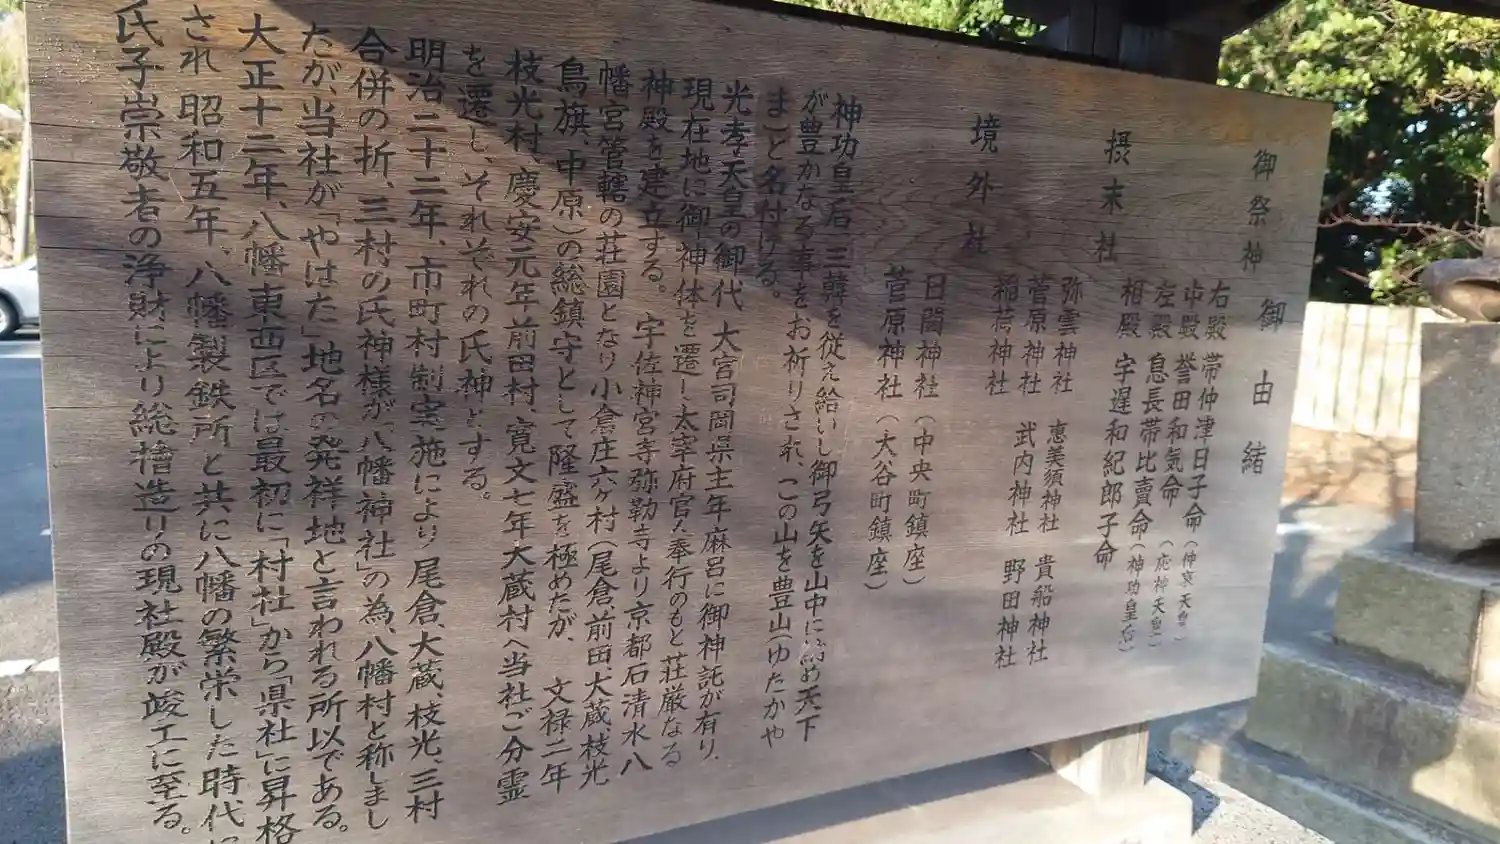 御祭神御由緒
右殿 帯仲津日子命(仲哀天皇)
中殿 誉田和気命(応神天皇)
左殿 息長帯比賣命(神功皇后)
相殿 宇遅和紀郎子命
摂末社
弥雲神社 恵美須神社 貴船神社
菅原神社 武内神社 野田神社
稲荷神社
境外社
日闇神社(中央町鎮座)
菅原神社(大谷町鎮座)
神功皇后、三韓を従え給いし御弓矢を山中に納め天下
が豊かなる事をお祈りされ、この山を豊山(ゆたかや
ま)と名付ける。
光孝天皇の御代 大宮司岡県主年麻呂に御神託が有り、
現在地に御神体を遷し太宰府官人奉行のもと荘厳なる
神殿を建立する。 宇佐神宮寺弥勒寺より京都石清水八
幡宮管轄の荘園となり小倉庄六ヶ村(尾倉、前田、大蔵、枝光
鳥旗、中原)の総鎮守として隆盛を極めたが、 文禄二年
枝光村、慶安元年前田村、寛文七年大蔵村へ当社ご分霊
を遷し、それぞれの氏神とする。
明治二十二年、市町村制実施により尾倉、大蔵、枝光、三村
合併の折、三村の氏神様が「八幡神社」の為、八幡村と称しまし
たが、当社が「やはた」地名の発祥地と言われる所以である。
大正十二年、八幡東西区では最初に「村社」から「県社」に昇格
され昭和五年、八幡製鉄所と共に八幡の繁栄した時代に
氏子崇敬者の浄財により総檜造りの現社殿が竣工に至る。